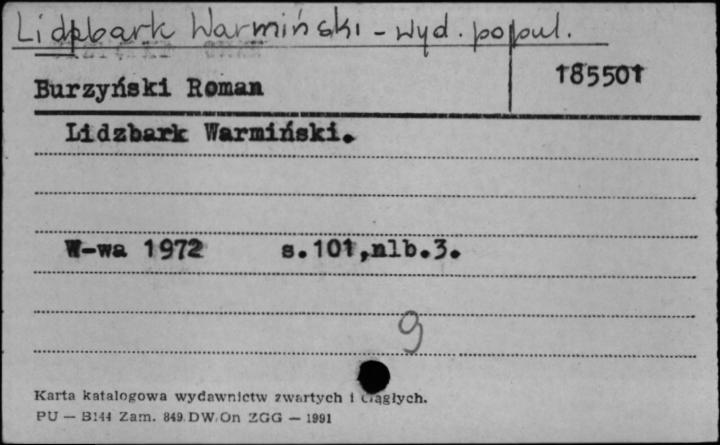 Lidzbark Warmiński - wyd. popul.
185501
Burzyński Roman
Lidzbark Warmiński.
W-wa 1972 s.101,nlb.3.
9
Karta katalogowa wydawnictw zwartych i ciągłych.
PU — B144 Zam. 849 DW.On ZGG — 1991